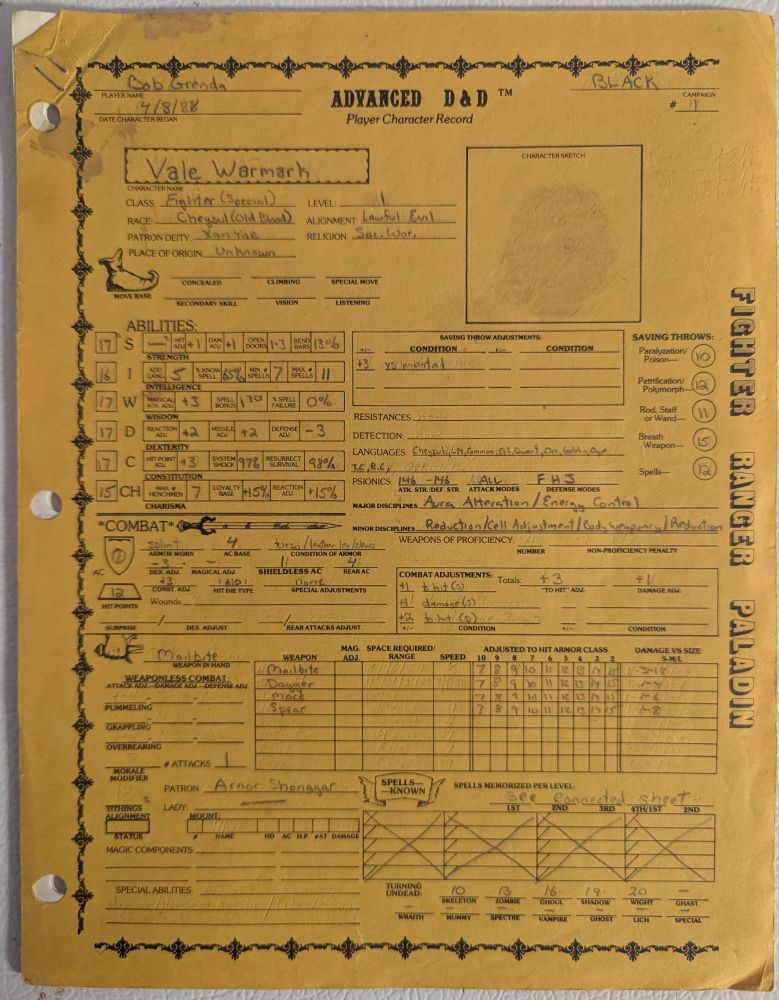 Bob Grenda
BLACK
PLAYER NAME
ADVANCED D&D ™
CAMPAIGN
4/8/88
# 1
DATE CHARACTER BEGAN
Player Character Record
Vale Warmark
CHARACTER SKETCH
CHARACTER NAME
CLASS Fighter (Special) LEVEL 1
RACE Cheysul (Old Blood) ALIGNMENT Lawful Evil
PATRON DEITY: Xan Yae RELIGION Sac. Wor.
PLACE OF ORIGIN Unknown
MOVE BASE
CONCEALED CLIMBING SPECIAL MOVE
SECONDARY SKILL VISION LISTENING
FIGHTER RANGER PALADIN
ABILITIES:
17 S — HIT ADJ +1 DAM ADJ +1 OPEN DOORS 1-3 BEND BARS 13%
STRENGTH
16 I ADD LANG 5 % KNOW SPELL 65% MIN # SPELLS 7 MAX # SPELLS 11
INTELLIGENCE
17 W MAGICAL ATK. ADJ. +3 SPELL BONUS % SPELL FAILURE 0%
WISDOM
17 D REACTION ADJ +2 MISSILE ADJ +2 DEFENSE ADJ -3
DEXTERITY
17 C HIT POINT ADJ +3 SYSTEM SHOCK 97% RESURRECT SURVIVAL 98%
CONSTITUTION
15 CH MAX # HENCHMEN 7 LOYALTY BASE +15% REACTION ADJ +15%
CHARISMA
SAVING THROW ADJUSTMENTS:
+/- CONDITION +/- CONDITION
+3 vs mental
SAVING THROWS:
Paralyzation/ Poison— 10
Petrification/ Polymorph— 12
Rod, Staff or Wand— 11
Breath Weapon— 15
Spells— 12
RESISTANCES none
DETECTION: none
LANGUAGES Cheysuli, LN, Common,
PSIONICS 146 -146 ALL F H J
ATK. STR./DEF. STR. ATTACK MODES DEFENSE MODES
MAJOR DISCIPLINES Aura Alteration/Energy Control
MINOR DISCIPLINES Reduction/Cell Adjustment/Body Weaponry/Reduction
*COMBAT*
WEAPONS OF PROFICIENCY: 4
NUMBER NON-PROFICIENCY PENALTY
AC
splint 4
ARMOR WORN AC BASE CONDITION OF ARMOR
-3 - 1 4
DEX. ADJ MAGICAL ADJ. SHIELDLESS AC REAR AC
+3 1d10 none
CONST. ADJ HIT DIE TYPE SPECIAL ADJUSTMENTS
12
HIT POINTS
Wounds
SURPRISE DEX. ADJUST REAR ATTACKS ADJUST.
COMBAT ADJUSTMENTS: Totals: +3 +1
"TO HIT" ADJ. DAMAGE ADJ.
+1 to hit (S)
+1 damage (S)
+2 to hit (D)
+/- CONDITION +/- CONDITION
Mailbite
WEAPON IN HAND
WEAPONLESS COMBAT:
ATTACK ADJ.—DAMAGE ADJ.—DEFENSE ADJ.
PUMMELING
GRAPPLING
OVERBEARING
MORALE MODIFIER
# ATTACKS: 1
WEAPON MAG. ADJ. SPACE REQUIRED/ RANGE SPEED ADJUSTED TO HIT ARMOR CLASS DAMAGE VS SIZE
10 9 8 7 6 5 4 3 2 S-M/L
Mailbite 7 8 9 10 11 12 13 14 15
Dagger 7 8 9 10 11 12 13 14 15
Mace 7 8 9 10 11 12 13 14 15
Spear 7 8 9 10 11 12 13 14 15 1-8
PATRON: Arnor Shonagar
SPELLS KNOWN
SPELLS MEMORIZED PER LEVEL:
see connected sheet
1ST 2ND 3RD 4TH/1ST 2ND
LADY
TITHINGS %
ALIGNMENT
STATUS
MOUNT:
# NAME HD AC H.P. #AT DAMAGE
MAGIC COMPONENTS
SPECIAL ABILITIES
TURNING UNDEAD:
10 13 16 19 20 —
SKELETON ZOMBIE GHOUL SHADOW WIGHT GHAST
WRAITH MUMMY SPECTRE VAMPIRE GHOST LICH SPECIAL